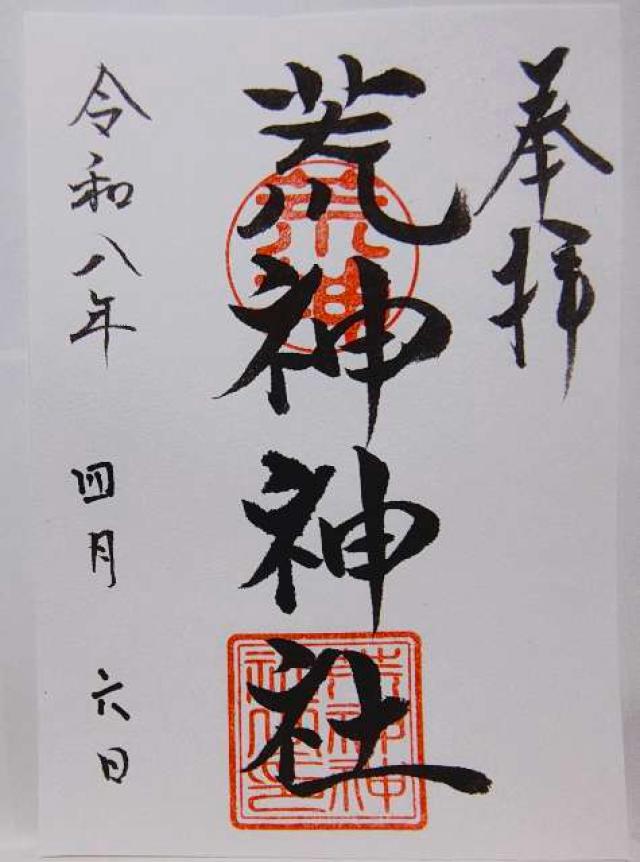 奉拝
荒神神社
荒神
令和八年 四月 六日